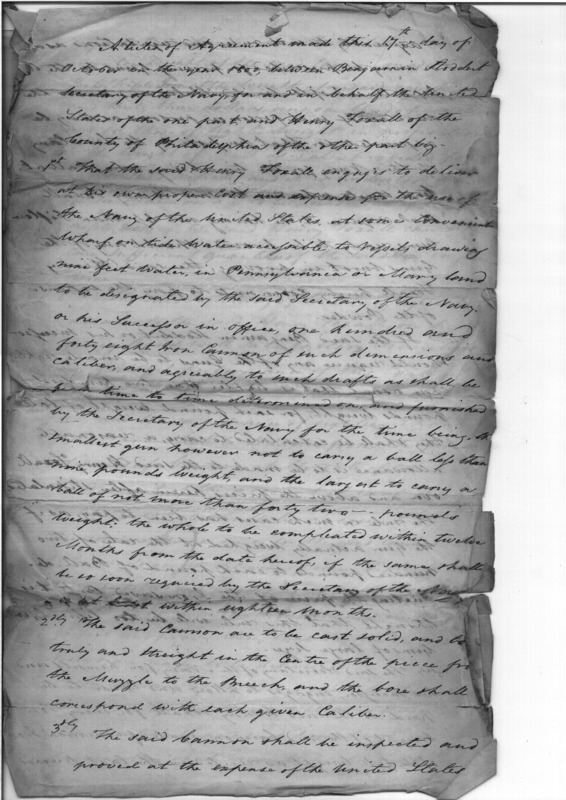 Articles of Agreement made this 17th day of
October in the year 1800, between Benjamin Stoddert
Secretary of the Navy, for and in behalf the United
States of the one part and Henry Foxall of the
County of Philadelphia of the other part viz.
1st That the said Henry Foxall engages to deliver
at his own proper Cost and expense for the use of
the Navy of the United States, at some Convenient
Wharf on tide Water accessible to Vessels drawing
nine feet Water, in Pennsylvania or Maryland
to be designated by the said Secretary of the Navy
or his Successor in office, one hundred and
forty eight Iron Cannon of such dimensions and
Caliber, and agreeably to such drafts as shall be
time to time determined on, and furnished
by the Secretary of the Navy for the time being, the
smallest gun however not to carry a ball less than
nine pounds weight, and the largest to carry a
ball of not more than forty two — pounds
weight: the whole to be compleated within twelve
Months from the date hereof, if the same shall
be so soon required by the Secretary of the Navy
within eighteen Months.
2dly The said Cannon are to be cast solid, and be
truly and streight in the Centre of the piece from
the Muzzle to the Breech, and the bore shall
correspond with each given Caliber.
3dly The said Cannon shall be inspected and
proved at the expense of the United States